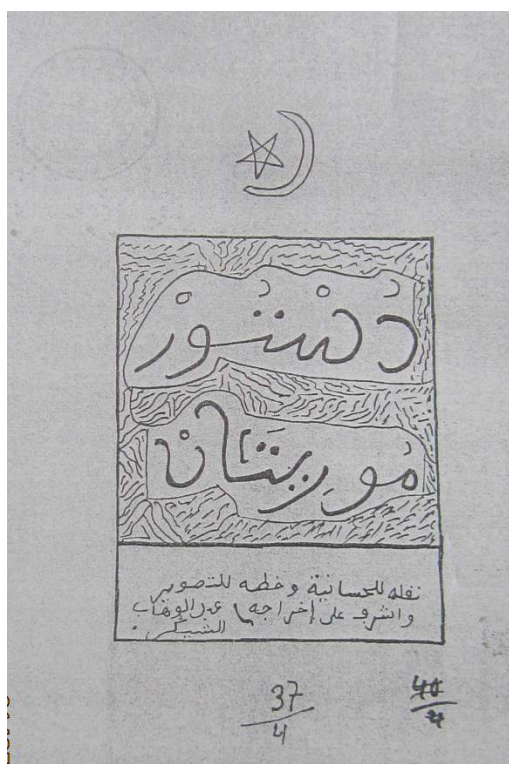 دُسْتُورْ
مُورِيتَانْ
نقله للحسانية وخطه للتصوير
وأشرف على إخراجه عبد الوهاب
الشيگر.
37
4